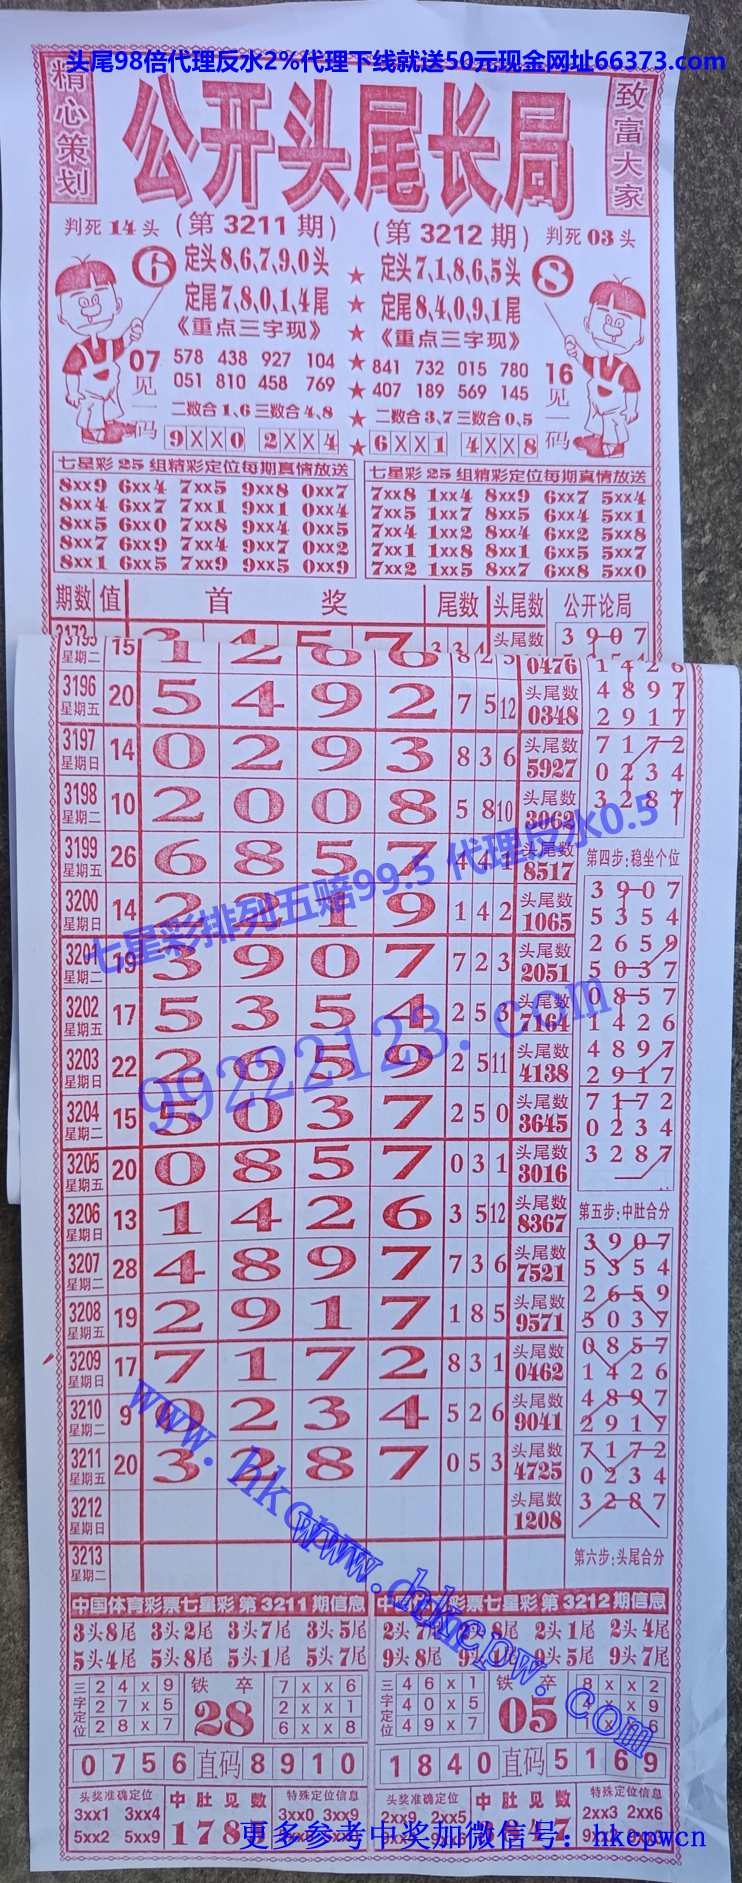 头尾98倍代理反水2%代理下线就送50元现金网址66373.com
精心策划
公开头尾长局
致富大家
判死14头 (第3211期) (第3212期) 判死03头
6 定头8,6,7,9,0头 ★ 定头7,1,8,6,5头 8
定尾7,8,0,1,4尾 ★ 定尾8,4,0,9,1尾
《重点三字现》 ★ 《重点三字现》
07见一码 578 438 927 104 ★ 841 732 015 780 16见一码
051 810 458 769 ★ 407 189 569 145
二数合1,6三数合4,8 ★ 二数合3,7三数合0,5
9XX0 2XX4 ★ 6XX1 4XX8
七星彩25组精彩定位每期真情放送 七星彩25组精彩定位每期真情放送
8xx9 6xx4 7xx5 9xx8 0xx7 7xx8 1xx4 8xx9 6xx7 5xx4
8xx4 6xx7 7xx1 9xx1 0xx4 7xx5 1xx7 8xx5 6xx4 5xx1
8xx5 6xx0 7xx8 9xx4 0xx5 7xx4 1xx2 8xx4 6xx2 5xx8
8xx7 6xx9 7xx4 9xx7 0xx2 7xx1 1xx8 8xx1 6xx5 5xx7
8xx1 6xx5 7xx9 9xx5 0xx9 7xx2 1xx5 8xx7 6xx8 5xx0
期数 值 首奖 尾数 头尾数 公开论局
头尾数 3907
星期二 15 0476 1426
3196 星期五 20 5 4 9 2 7 5 12 头尾数 0348 4897
2917
3197 星期日 14 0 2 9 3 8 3 6 头尾数 5927 7172
0234
3198 星期二 10 2 0 0 8 5 8 10 头尾数 3062 3287
3199 星期五 26 6 8 5 7 4 4 头尾数 8517 第四步:稳坐个位
3200 星期日 14 2 2 1 9 1 4 2 头尾数 1065 3907
5354
星期二 19 3 9 0 7 7 2 3 头尾数 2051 2659
5037
3202 星期五 17 5 3 5 4 2 5 3 头尾数 7164 0857
1426
3203 星期日 22 2 6 5 9 2 5 11 头尾数 4138 4897
2917
3204 星期二 15 5 0 3 7 2 5 0 头尾数 3645 7172
0234
3205 星期五 20 0 8 5 7 0 3 1 头尾数 3016 3287
3206 星期日 13 1 4 2 6 3 5 12 头尾数 8367 第五步:中肚合分
3207 星期二 28 4 8 9 7 7 3 6 头尾数 7521 3907
5354
3208 星期五 19 2 9 1 7 1 8 5 头尾数 9571 2659
5037
3209 星期日 17 7 1 7 2 8 3 1 头尾数 0462 0857
1426
3210 星期二 9 0 2 3 4 5 2 6 头尾数 9041 4897
2917
3211 星期五 20 3 2 8 7 0 5 3 头尾数 4725 7172
0234
3212 星期日 头尾数 1208 3287
3213 星期二 第六步:头尾合分
七星彩排列五赔99.5 代理反水0.5
99222123.com
www.hkcpw.com
中国体育彩票七星彩 第3211期信息 彩票七星彩 第3212期信息
3头8尾 3头2尾 3头7尾 3头5尾 2头7尾 8尾 2头1尾 2头4尾
5头4尾 5头8尾 5头1尾 5头7尾 9头8尾 9头1尾 9头5尾 9头7尾
三字定位 24x9 铁卒 7xx6 三字定位 46x1 铁卒 8xx2
27x5 28 2xx1 40x5 05 9
28x7 6xx8 49x7 6
0756 直码 8910 1840 直码 5169
头奖准确定位 中肚见数 特殊定位信息 头奖准确定位 中肚见数 特殊定位信息
3xx1 3xx4 3xx0 3xx9 2xx9 2xx5 2xx3 2xx6
5xx2 5xx9 178
更多参考中奖加微信号：hkcpwcn